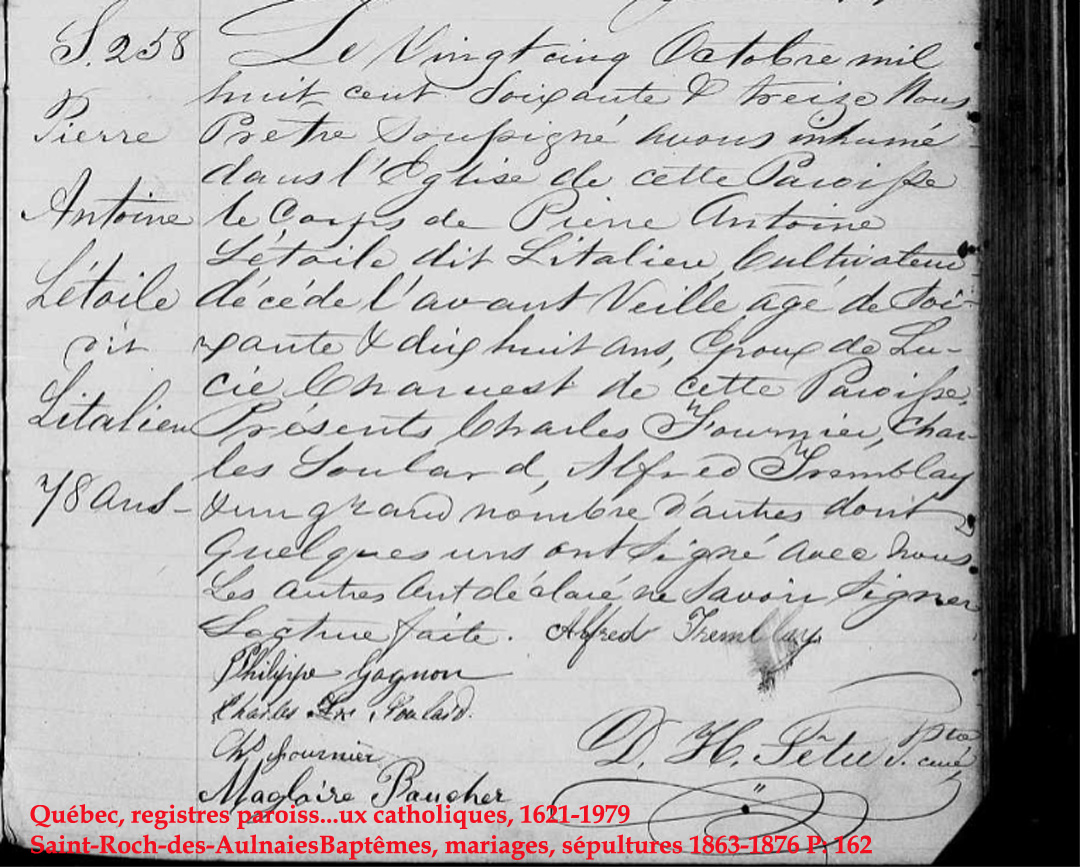 S. 258
Pierre
Antoine
Létoile
dit
Litalien
78 ans
Le Vingt cinq Octobre mil
huit cent soixante & treize Nous
Prêtre Soussigné avons inhumé
dans l'Eglise de cette Paroisse
le Corps de Pierre Antoine
Létoile dit Litalien, Cultivateur
décédé l'avant Veille agé de Soi-
xante & dix huit ans, Epoux de Lu-
cie Charuest de cette Paroisse.
Présents Charles Fournier, Char-
les Soulard, Alfred Tremblay
& un grand nombre d'autres dont
quelques uns ont signé avec nous.
Les autres ont déclaré ne savoir signer
Lecture faite. Alfred Tremblay
Philippe Gagnon
Charles Soulard.
Chs Fournier
Magloire Paucher
D. H. Têtu Ptre
curé
Québec, registres paroiss...ux catholiques, 1621-1979
Saint-Roch-des-AulnaiesBaptêmes, mariages, sépultures 1863-1876 P. 162